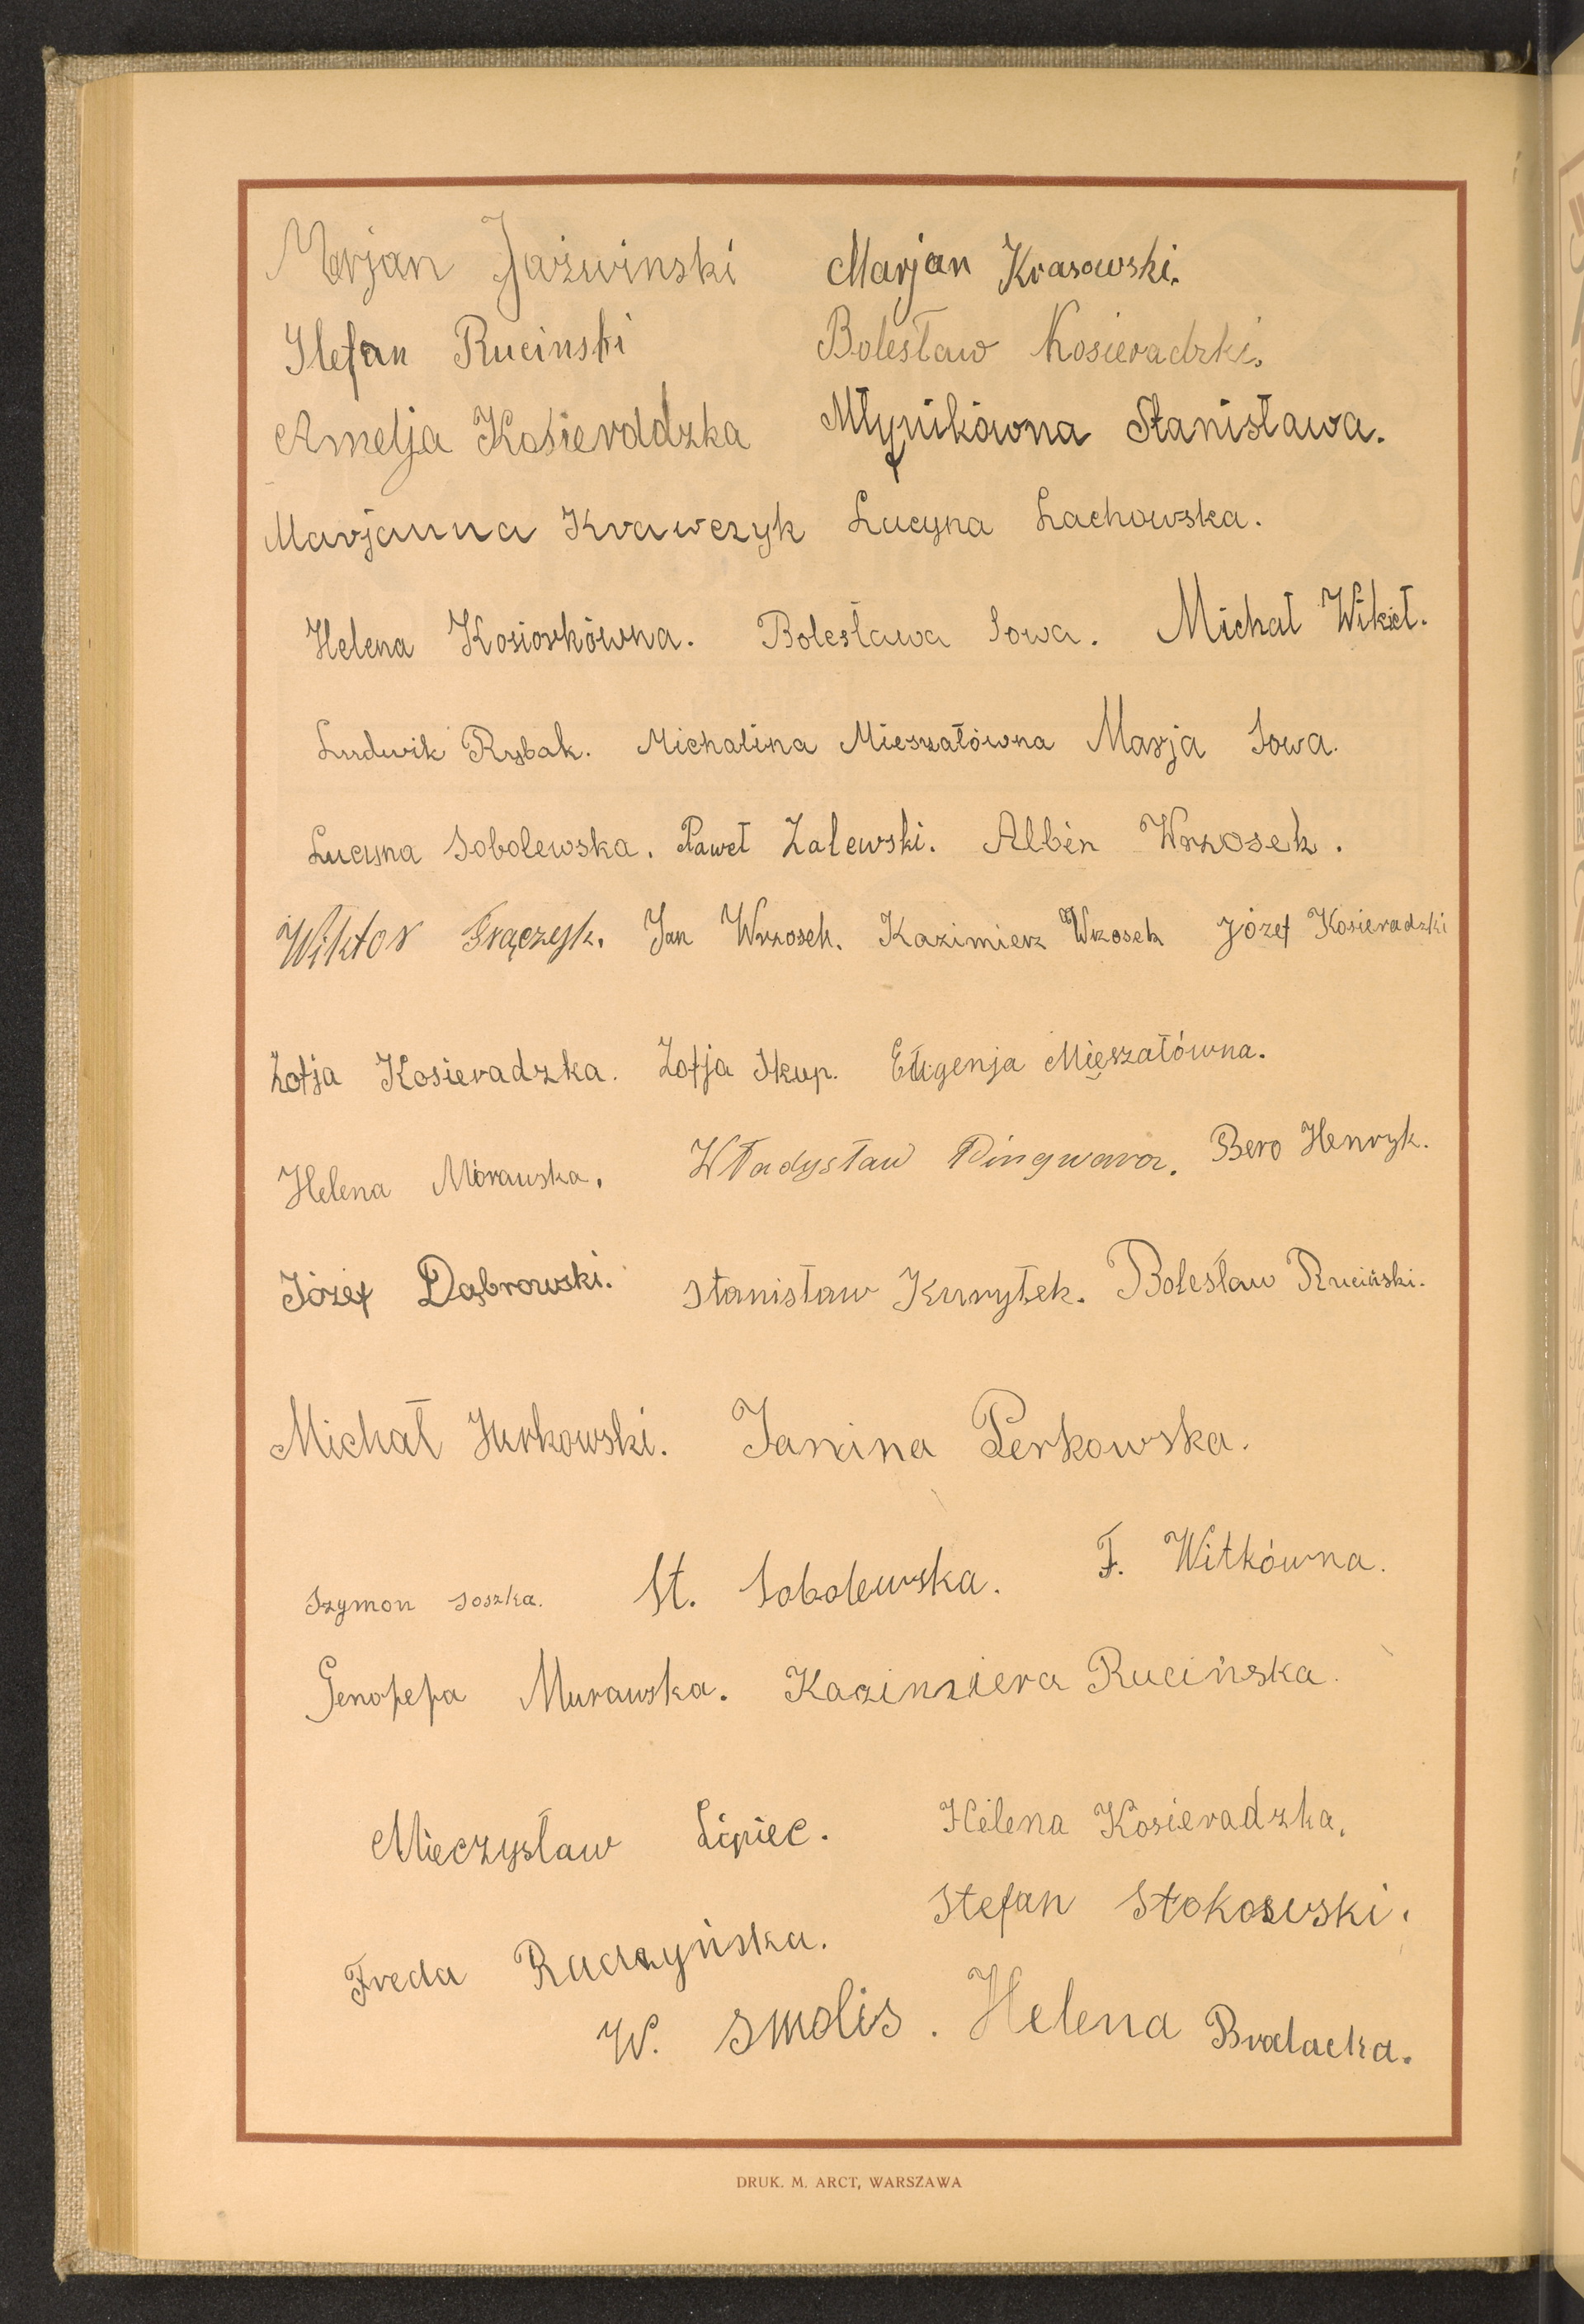 Marjan Jaźwinski Marjan Krasowski.
Stefan Rucinski Bolesław Kosieradzki.
Amelja Kosieradzka Młynikówna Stanisława.
Marjanna Krawczyk Lucyna Lachowska.
Helena Kosiorkówna. Bolesława Sowa. Michał Wikieł.
Ludwik Rybak. Michalina Mieszałówna Marja Sowa.
Lucyna Sobolewska. Paweł Zalewski. Albin Wrzosek.
Wiktor Frączyk. Jan Wrzosek. Kazimierz Wrzosek Józef Kosieradzki
Zofja Kosieradzka. Zofja Skup. Eugenja Mięszałówna.
Helena Morawska. Władysław Pingwara. Bero Henryk.
Józef Dąbrowski. Stanisław Kurytek. Bolesław Ruciński.
Michał Jurkowski. Janina Perkowska.
Szymon Soszka. St. Sobolewska. F. Witkówna.
Genofefa Murawska. Kazimiera Rucińska.
Mieczysław Lipiec. Helena Kosieradzka.
Stefan Stokowski.
Freda Radzyńska.
W. Smolis. Helena Brodacka.
DRUK. M. ARCT, WARSZAWA